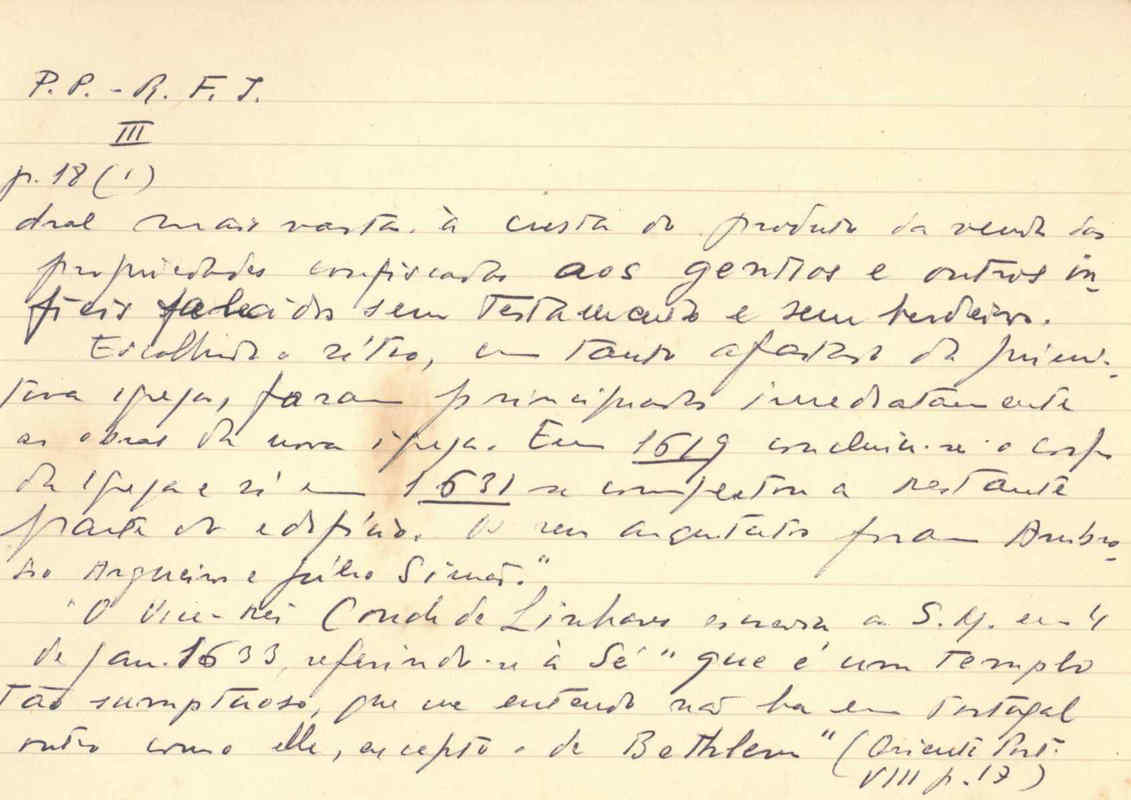 P.P. - R. F. J.
III
p. 18 (1)
dral mais vasta à custa do produto da venda das
propriedades confiscadas aos gentios e outros in-
fieis falecidos sem testamento e sem herdeiros.
Escolhido o sítio, um tanto afastado da primi-
tiva igreja, foram principiadas imediatamente
as obras da nova igreja. Em 1619 concluiu-se o corpo
da igreja e só em 1631 se completou a restante
parte do edifício. Os seus arquitetos foram Ambro-
sio Argueiro e Júlio Simão."
"O Vice-rei Conde de Linhares escrevia a S. M. em 4
de Jan. 1633, referindo-se à Sé "que é um templo
tão sumptuoso, que me entendo não ha em Portugal
outro como elle, excepto o de Bethlem" (Oriente Port.
VIII p. 17)